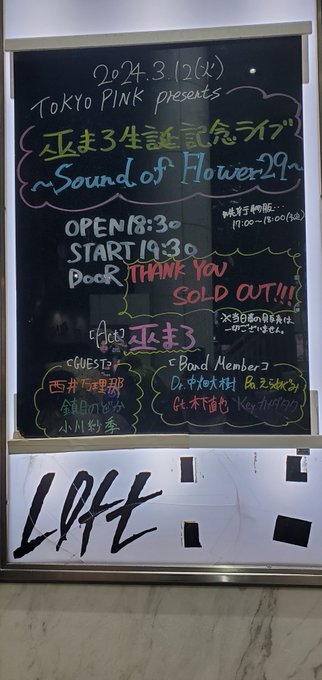 2024.3.12(火)
TOKYO PINK presents
巫まろ生誕記念ライブ
~Sound of Flower29~
17:00~18:00(予定)
OPEN18:30
START19:30
DooR THANK YOU
SOLD OUT!!!
※当日券の販売は
一切ございません。
[Act] 巫まろ
[GUEST]
西井万理那
鎮目のどか
小川紗季
[Band Member]
Dr.中畑大樹
Gt.木下直也
LOFT